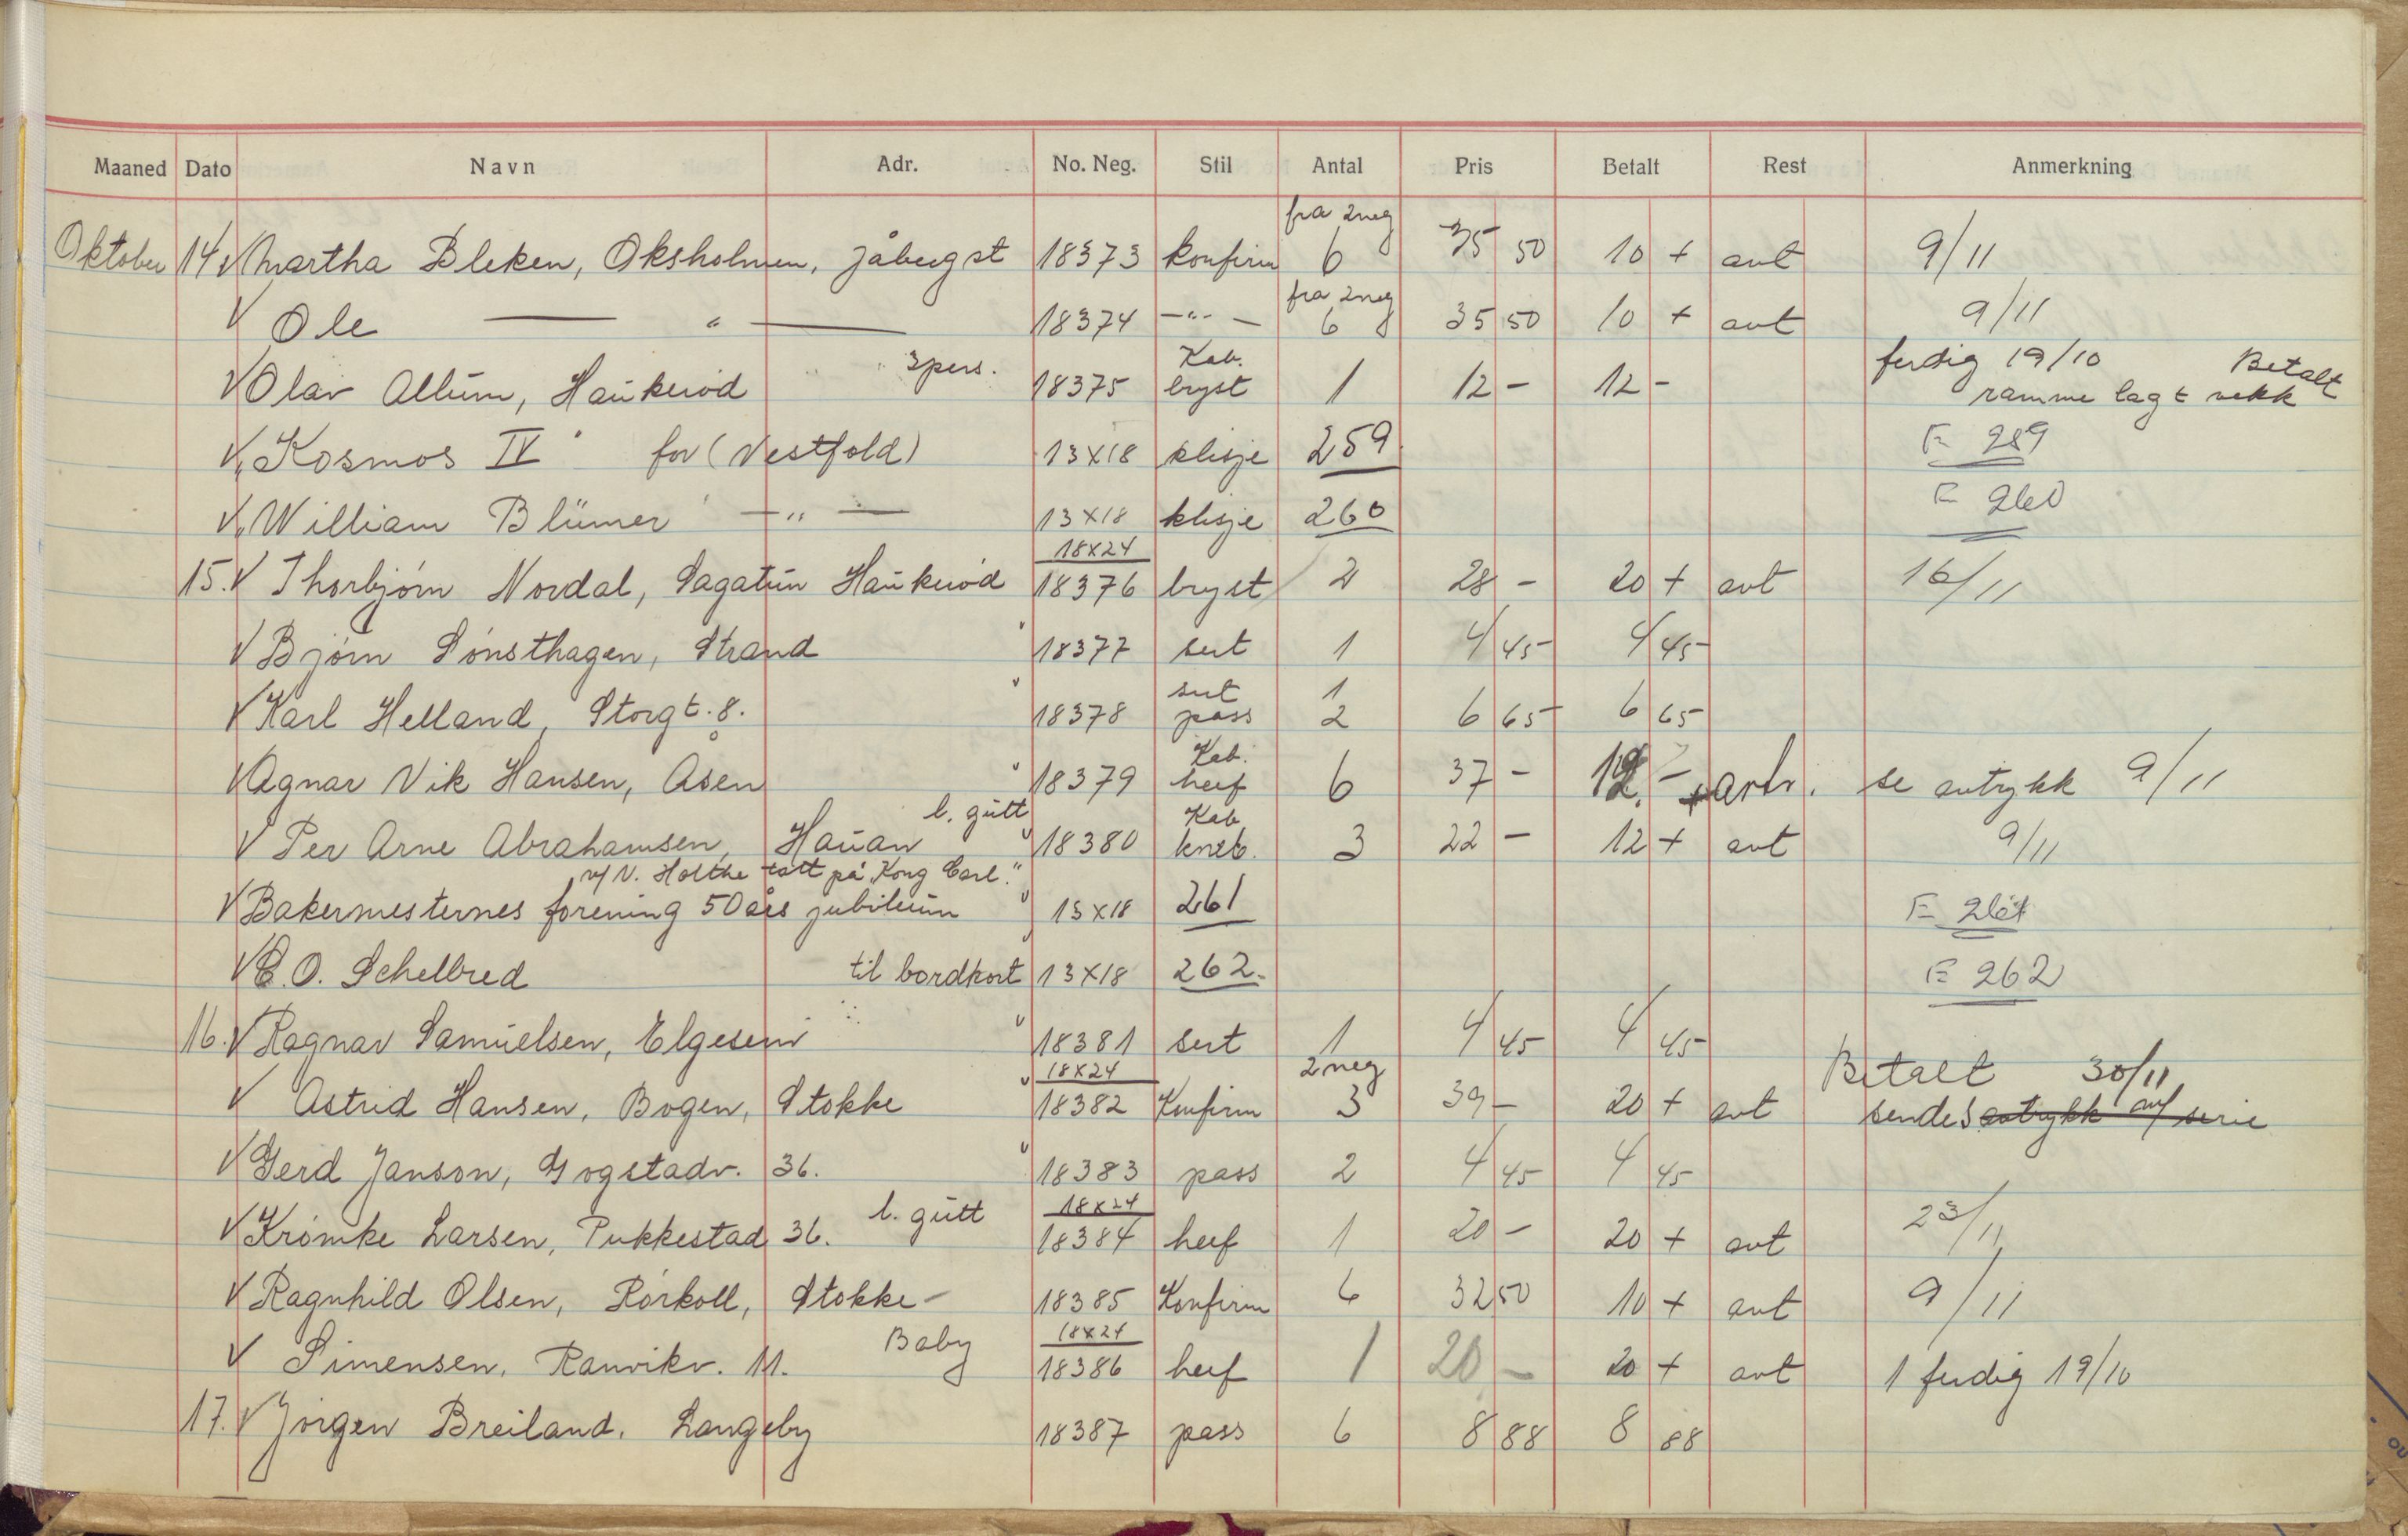 Maaned Dato Navn Adr. No. Neg. Stil Antal Pris Betalt Rest Anmerkning
fra 2neg
Oktober 14 √ Martha Bleken, Oksholmen, Jåbergst 18373 konfirm 6 35 50 10 + avt 9/11
fra 2neg
√ Ole — " — 18374 —"— 6 35 50 10 + avt 9/11
3pers. Kab. ferdig 19/10 Betalt
√ Olav Allum, Haukerød 18375 bryst 1 12 - 12 - ramme lagt vekk
√ "Kosmos IV" for (Vestfold) 13X18 klisje 259 F 259
√ "William Blümer" —"— 13X18 klisje 260 F 260
18X24
15. √ Thorbjørn Nordal, Sagatun Haukerød 18376 bryst 2 28 - 20 + avt 16/11
√ Bjørn Sønsthagen, Strand " 18377 sert 1 4 45- 4 45-
sert 1
√ Karl Helland, Storgt. 8. " 18378 pass 2 6 65- 6 65-
Kab.
√ Agnar Vik Hansen, Åsen " 18379 heef 6 37 - 12. - + avtr. se avtrykk 9/11
l. gutt Kab
√ Per Arne Abrahamsen, Hauan " 18380 kneb. 3 22 - 12 + avt 9/11
v/ N. Holthe tatt på "Kong Carl."
√ Bakermesternes forening 50 års jubileum " 13X18 261 F 261
√ C. O. Schelbred til bordkort " 13X18 262- F 262
16. √ Ragnar Samuelsen, Elgesem " 18381 sert 1 4 45- 4 45-
18X24 2neg Betalt 30/11
√ Astrid Hansen, Bogen, Stokke " 18382 Konfirm 3 39 - 20 + avt sendes avtrykk av serie
√ Gerd Janson, Gogstadv. 36. " 18383 pass 2 4 45 4 45
l. gutt 18X24
√ Krømke Larsen, Pukkestad 36. 18384 heef 1 20 - 20 + avt 23/11
√ Ragnhild Olsen, Rørkoll, Stokke - 18385 Konfirm 6 32 50 10 + avt 9/11
Baby 18X24
√ Simensen, Ranvikv. 11. 18386 heef 1 20 - 20 + avt 1 ferdig 19/10
17. √ Jørgen Breiland. Langeby 18387 pass 6 8 88 8 88